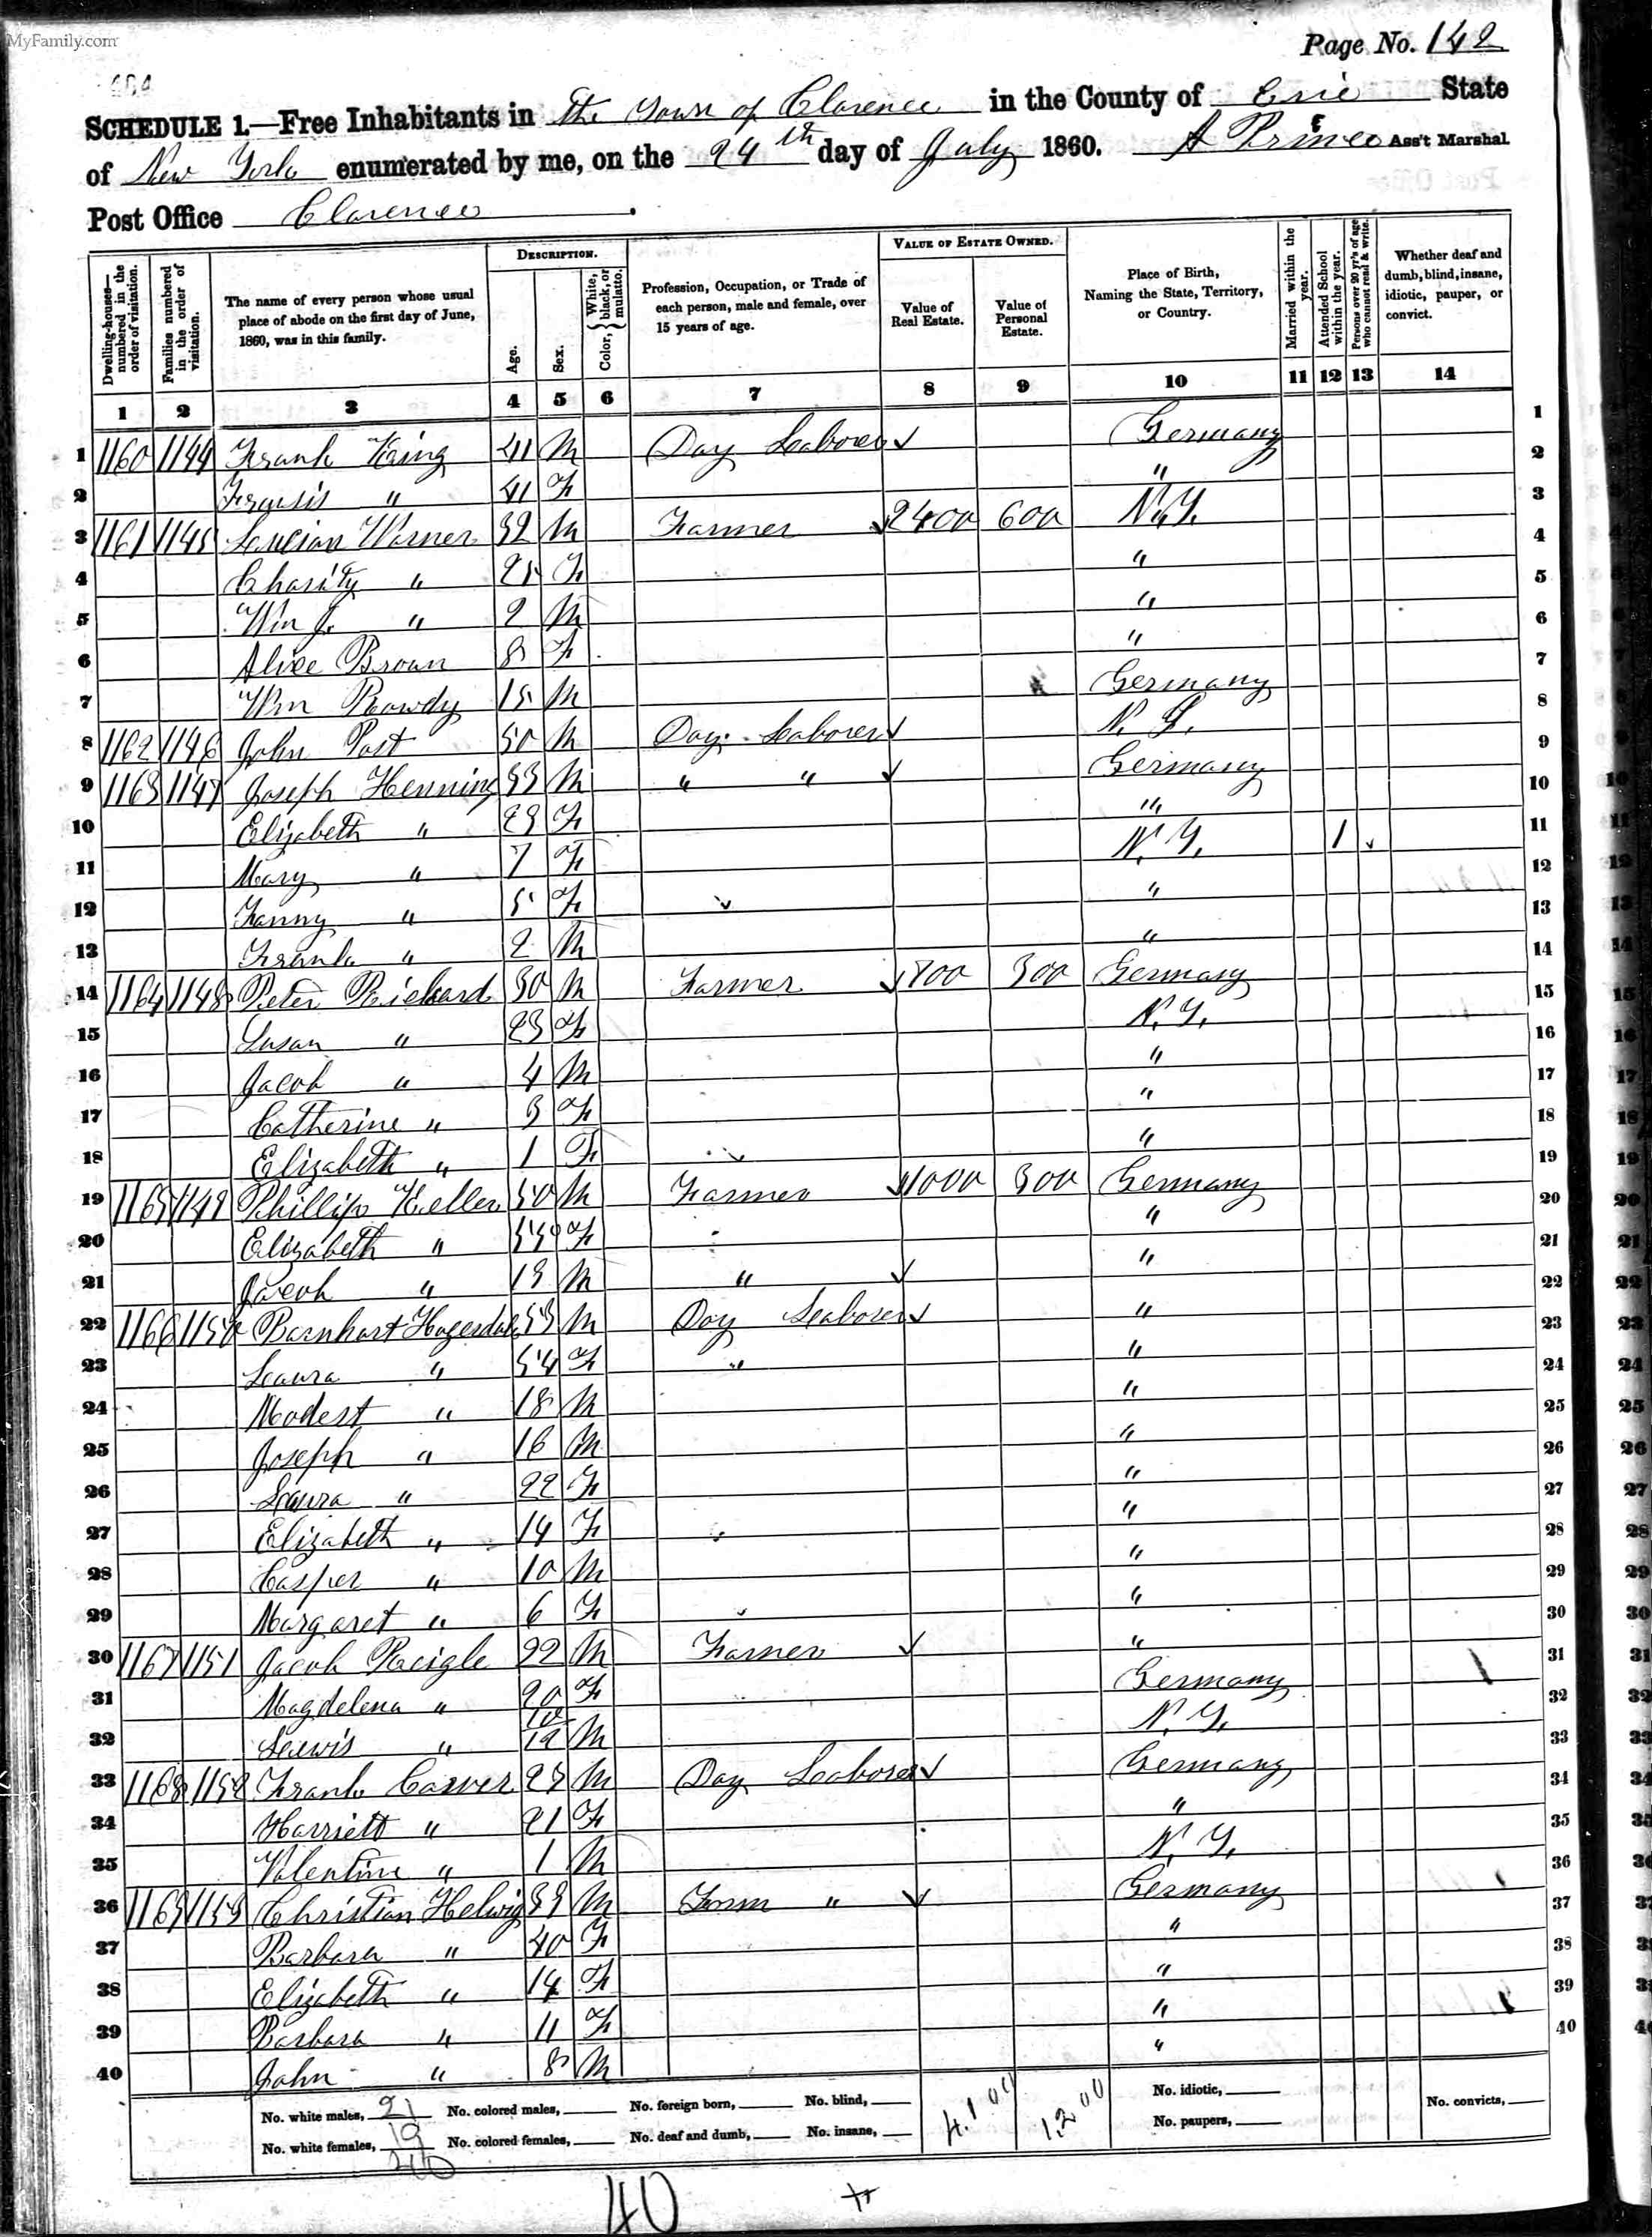 MyFamily.com
Page No. 142
SCHEDULE 1.—Free Inhabitants in The Town of Clarence in the County of Erie State
of New York enumerated by me, on the 24th day of July 1860. A Prince Ass't Marshal
Post Office Clarence.
Dwelling-houses—numbered in the order of visitation.
Families numbered in the order of visitation.
The name of every person whose usual place of abode on the first day of June, 1860, was in this family.
DESCRIPTION.
Age.
Sex.
Color, White, black, or mulatto.
Profession, Occupation, or Trade of each person, male and female, over 15 years of age.
VALUE OF ESTATE OWNED.
Value of Real Estate.
Value of Personal Estate.
Place of Birth, Naming the State, Territory, or Country.
Married within the year.
Attended School within the year.
Persons over 20 yr's of age who cannot read & write.
Whether deaf and dumb, blind, insane, idiotic, pauper, or convict.
1 2 3 4 5 6 7 8 9 10 11 12 13 14
1 1160 1144 Frank King 41 M Day Laborer Germany 1
2 " 41 F " 2
3 1161 1145 Lucian Warner 32 M Farmer 2400 600 N.Y. 3
4 Charity " 25 F " 4
5 Wm J. " 2 M " 5
6 Alice Brown 8 F " 6
7 Wm Rowdy 15 M Germany 7
8 1162 1146 John Post 50 M Day Laborer N.Y. 8
9 1163 1147 Joseph Henning 33 M " " Germany 9
10 Elizabeth " 23 F " 10
11 Mary " 7 F N.Y. 1 11
12 Fanny " 5 F " 12
13 Frank " 2 M " 13
14 1164 1148 Peter Richard 30 M Farmer 700 300 Germany 14
15 Susan " 23 F N.Y. 15
16 Jacob " 4 M " 16
17 Catherine " 3 F " 17
18 Elizabeth " 1 F " 18
19 1165 1149 Phillip Keller 50 M Farmer 1000 300 Germany 19
20 Elizabeth " F " 20
21 Jacob " 19 M " " 21
22 1166 1150 Barnhart 53 M Day Laborer " 22
23 Laura " 54 F " " 23
24 Modest " 18 M " 24
25 Joseph " 16 M " 25
26 Laura " 22 F " 26
27 Elizabeth " 14 F " 27
28 Casper " 10 M " 28
29 Margaret " 6 F " 29
30 1167 1151 Jacob Raigle 22 M Farmer " 30
31 Magdelena " 20 F Germany 31
32 Lewis " M N.Y. 32
33 1168 1152 Frank Carver 25 M Day Laborer Germany 33
34 Harriett " 21 F " 34
35 Valentine " 1 M N.Y. 35
36 1169 1153 Christian Helwig 39 M Farm " Germany 36
37 Barbara " 40 F " 37
38 Elizabeth " 14 F " 38
39 Barbara " 11 F " 39
40 John " 8 M " 40
No. white males, 21 No. colored males, No. foreign born, No. blind, 4100 1200 No. idiotic, No. convicts,
No. white females, 19 No. colored females, No. deaf and dumb, No. insane, No. paupers,
40
40